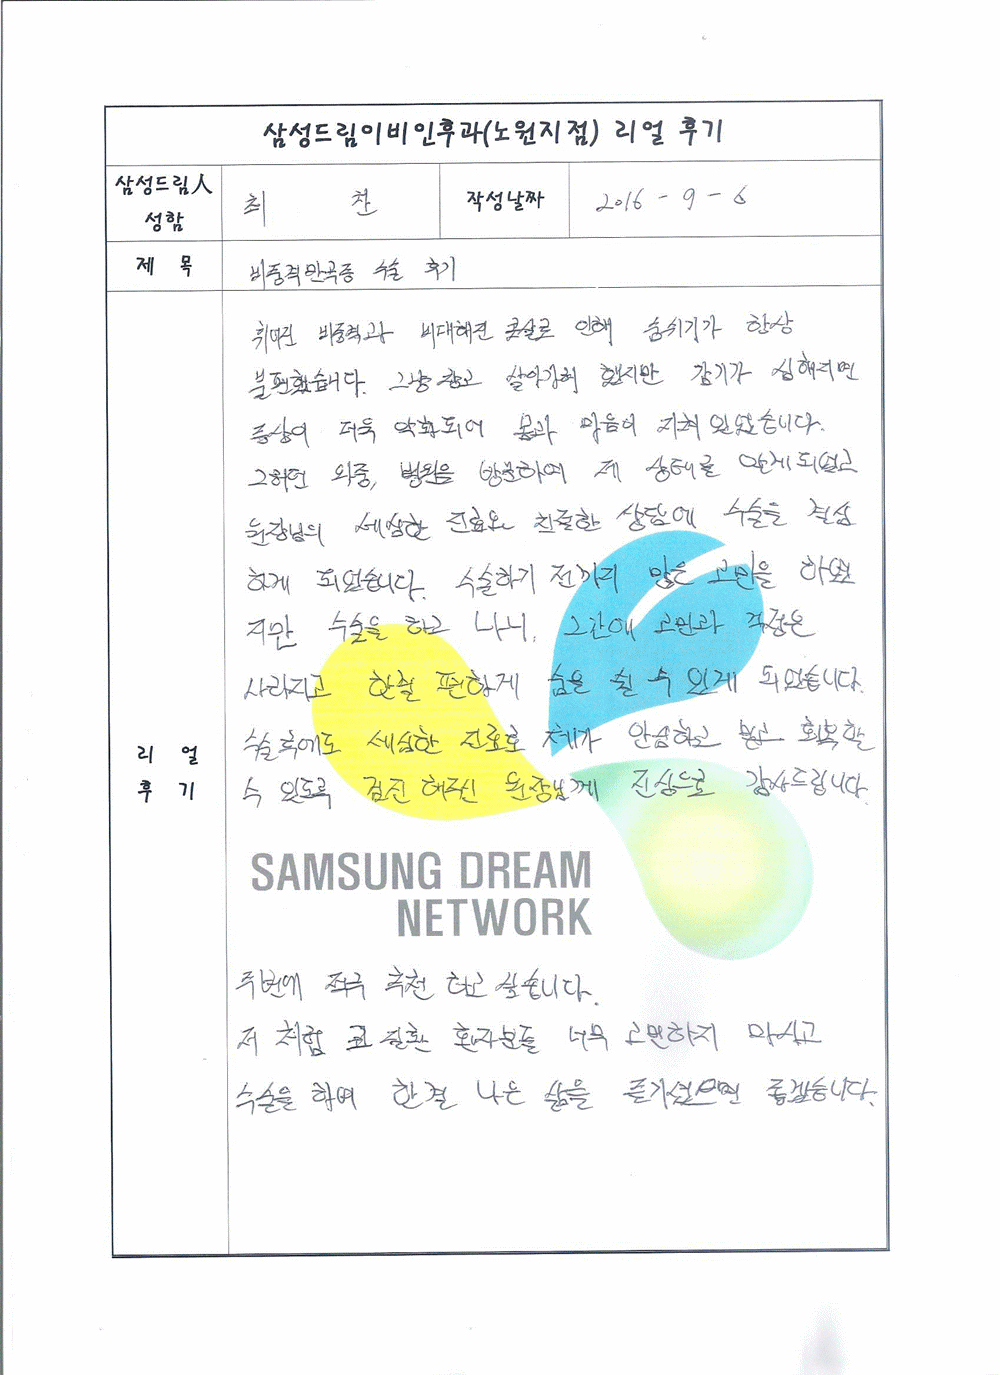 삼성드림이비인후과(노원지점) 리얼 후기
삼성드림人 성함
최 찬
작성날짜
2016 - 9 - 6
제 목
비중격만곡증 수술 후기
리 얼 후 기
휘어진 비중격과 비대해진 콧살로 인해 숨쉬기가 항상
불편했습니다. 그냥 참고 살아가려 했지만 감기가 심해지면
증상이 더욱 악화되어 몸과 마음이 지쳐 있었습니다.
그러던 와중, 병원을 방문하여 제 상태를 알게되었고
원장님의 세심한 진료와 친절한 상담에 수술을 결심
하게 되었습니다. 수술하기 전까지 많은 고민을 하였
지만 수술을 하고 나니, 그간에 고민과 걱정은
사라지고 한결 편하게 숨을 쉴 수 있게 되었습니다.
수술후에도 세심한 진료로 제가 안심하고 믿고 회복할
수 있도록 검진 해주신 원장님께 진심으로 감사드립니다.
SAMSUNG DREAM
NETWORK
주변에 적극 추천 하고 싶습니다.
저 처럼 코 질환 환자분들 너무 고민하지 마시고
수술을 하여 한결 나은 삶을 즐기셨으면 좋겠습니다.